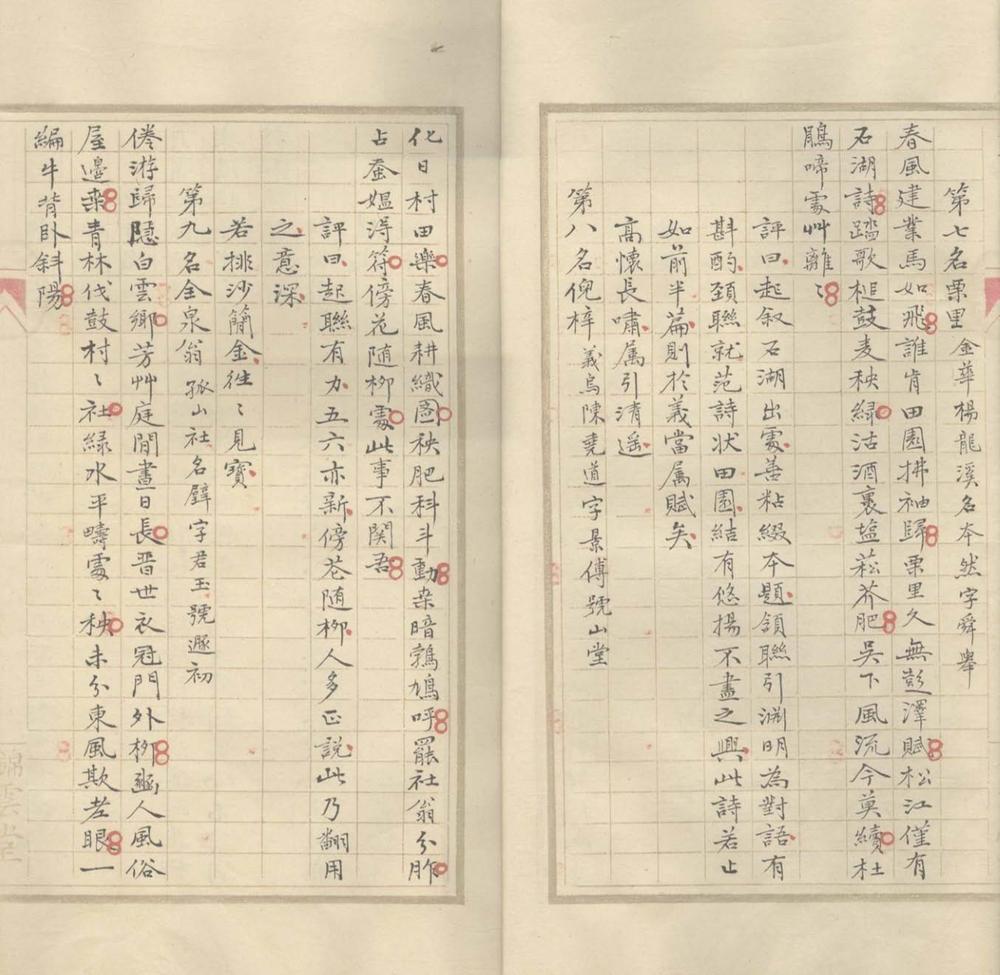 第七名栗里金華楊龍溪名本然字舜舉
春風建業馬如飛誰肯田園拂袖歸栗里久無彭澤賦松江僅有
石湖詩踏歌槌鼓麦秧緑沽酒裹塩菘芥肥吴下風流今莫續杜
鵑啼䖏艸離〻
評曰起叙石湖出䖏善粘綴本題頷聯引淵明為對語有
斟酌頚聯就范詩状田園結有悠揚不盡之興此詩若止
如前半篇則於義當属賦矣
高懷長嘯属引清遥
第八名倪梓義烏陳堯道字景傅號山堂
化日村田樂春風耕織圖秧肥科斗動桒暗鵓鳩呼罷社翁分胙
占蚕媼淂符傍花随柳䖏此事不関吾
評曰起聯有力五六亦新傍花随柳人多正說此乃翻用
之意深
若排沙簡金徃〻見寶
第九名全泉翁孤山社名璧字君玉號遯初
倦游歸隠白雲鄉芳艸庭閒晝日長晋世衣冠門外柳豳人風俗
屋邉桒青林伐鼓村〻社緑水平疇䖏〻秧未分東風欺老眼一
編牛背卧斜陽